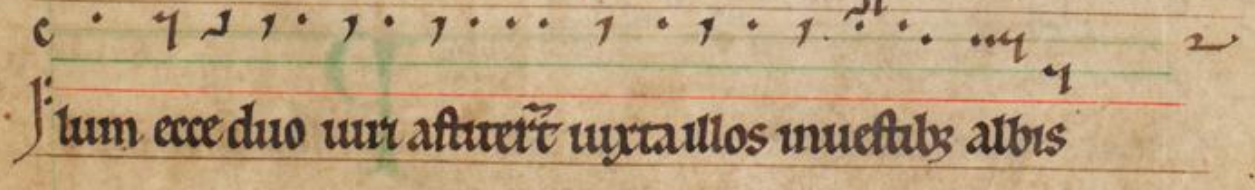 lum ecce duo uiri aſtiter̄t iuxta illos in ueſtibꝫ albis